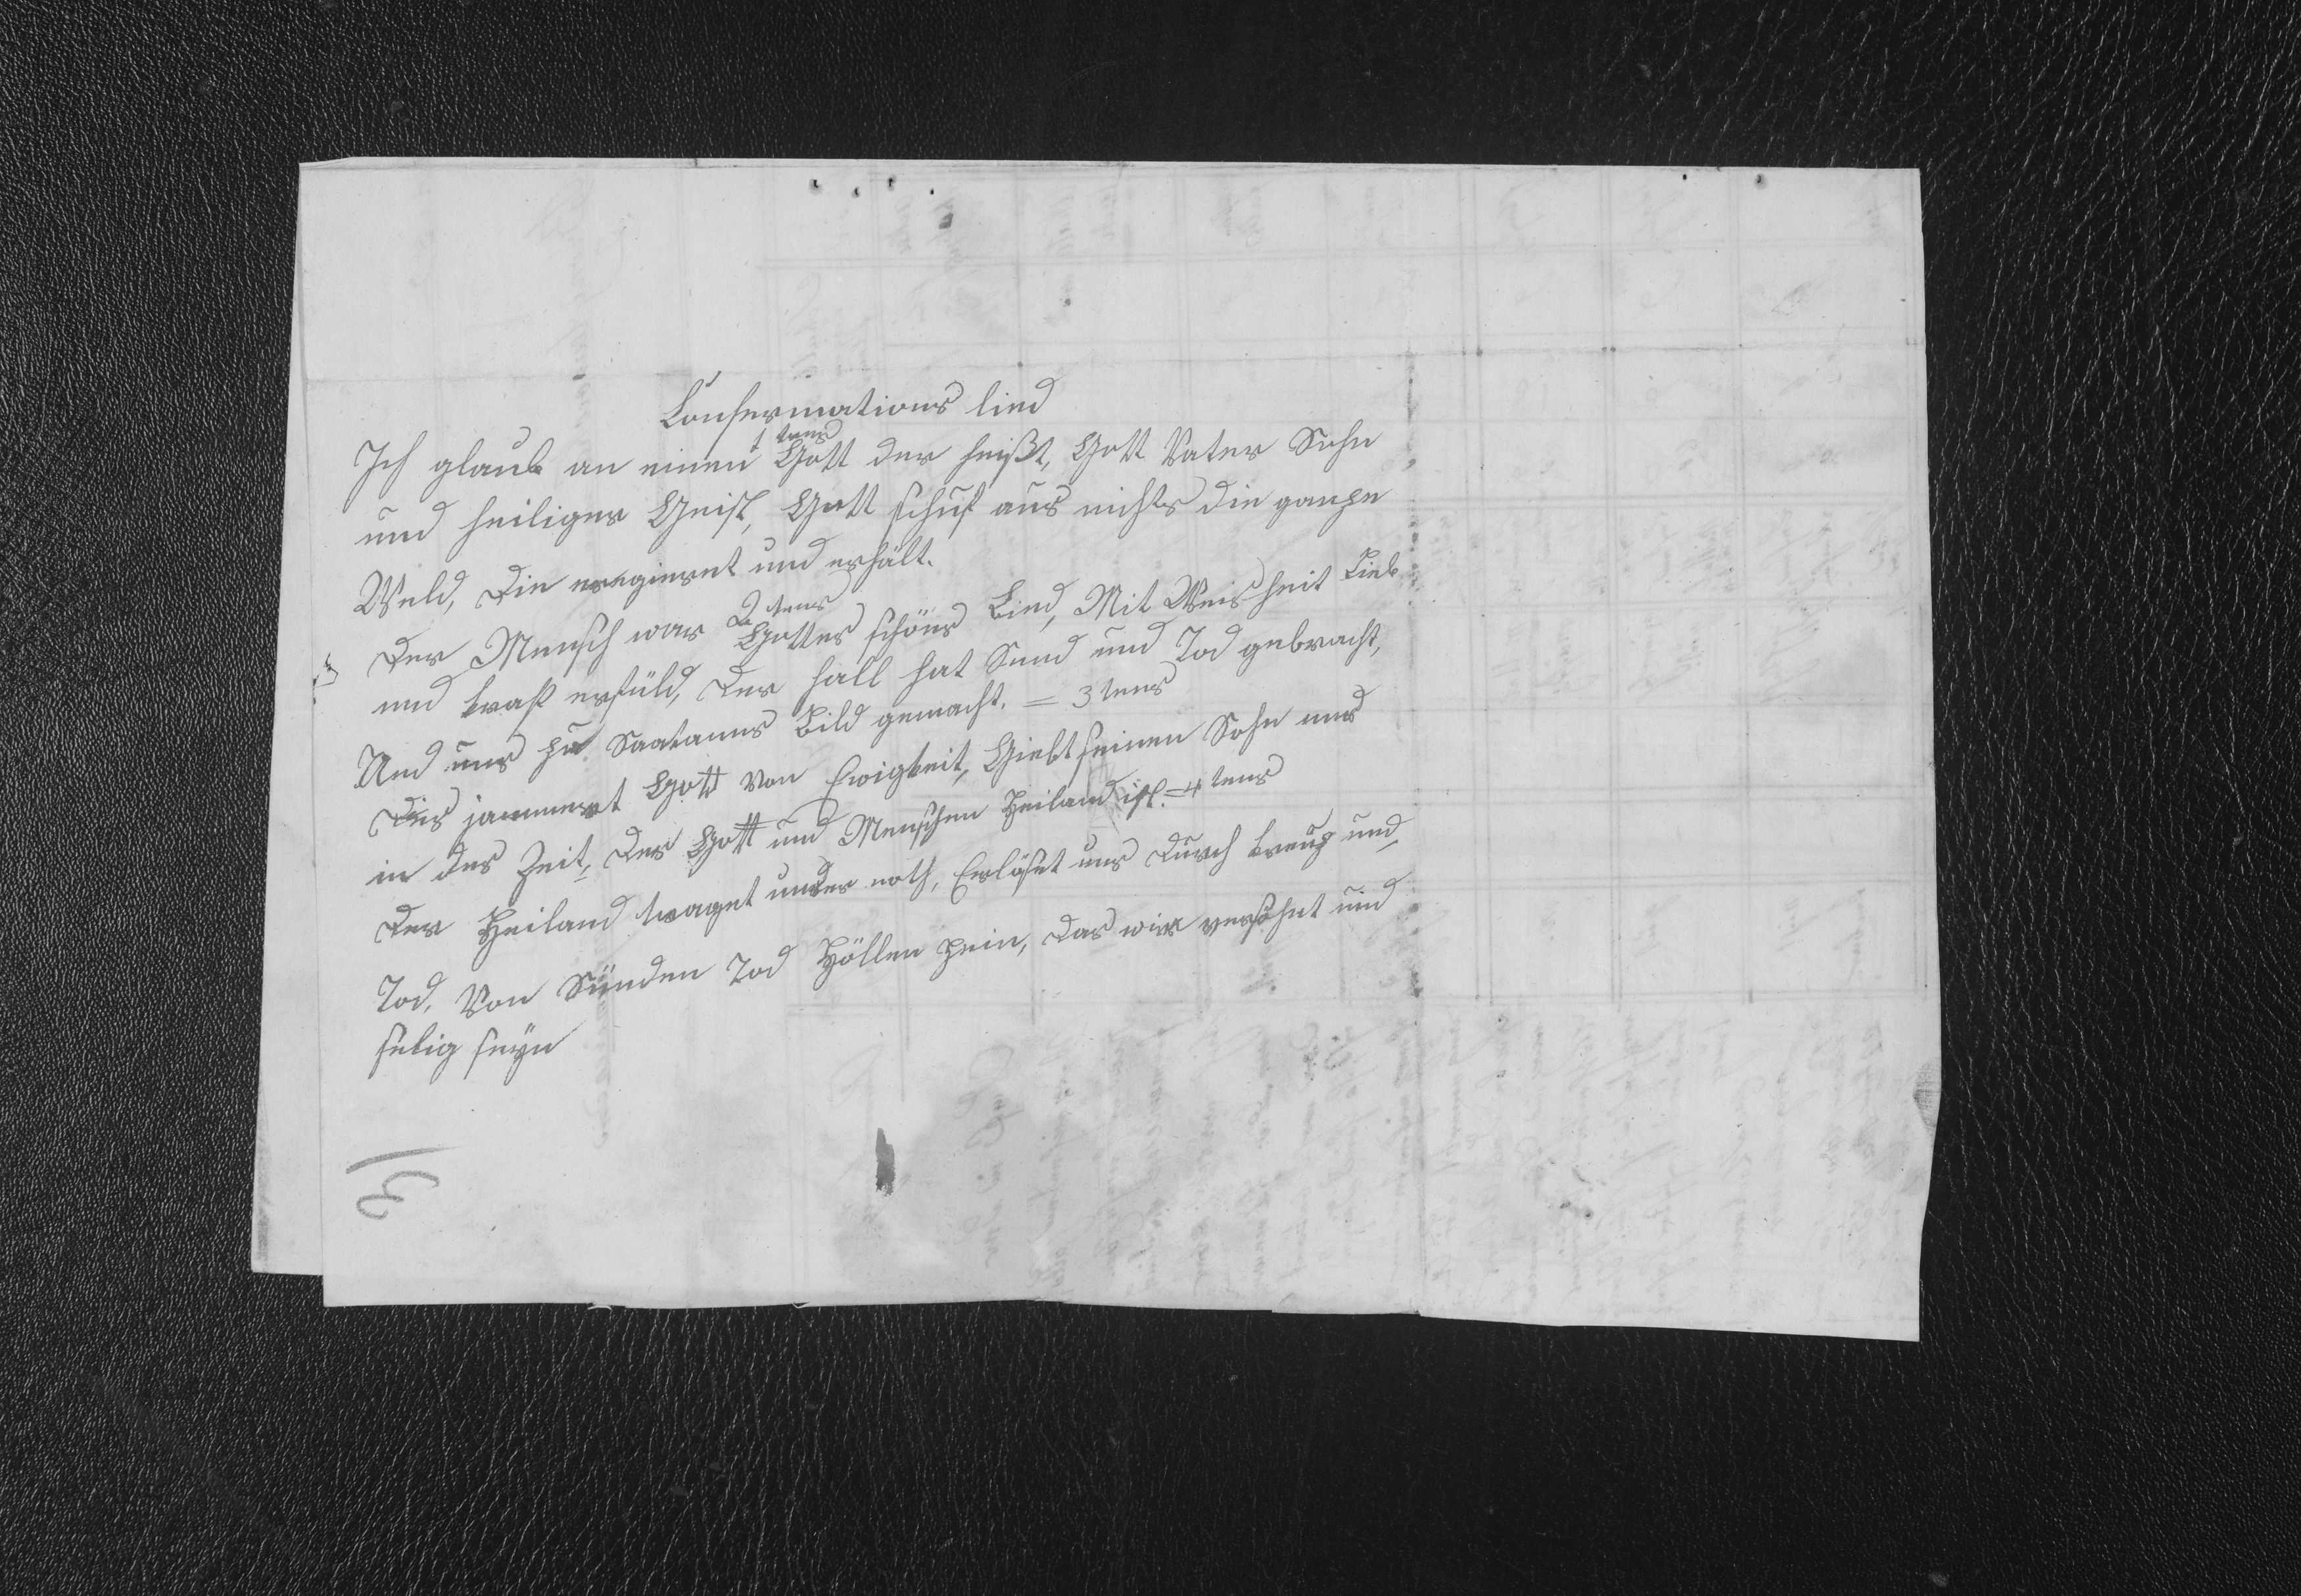 Confermations lied
1 tens
Ich glaub an einen Gott der heißt, Gott Vater Sohn
und heiliger Geist, Gott schuf aus nichts die ganze
Weld, Die eregieret und erhält.
2 tens
Der Mensch war Gottes schöns Bind, Mit Weisheit Lieb
und kraft erfüld, Der fall hat Sund und Tod gebracht,
Und uns zu Saatanns Bild gemacht. = 3 tens
Dis jammert Gott Von Ewigkeit, Giebt seinen Sohn uns
in der Zeit, Der Gott und Menschen Heiland ist. = 4 tens
Der Heiland traget unser noth, Erlöset uns Durch kreuz und
Tod, Von Sünden Tod Höllen pein, Das wir versöhnt und
selig seyn
13